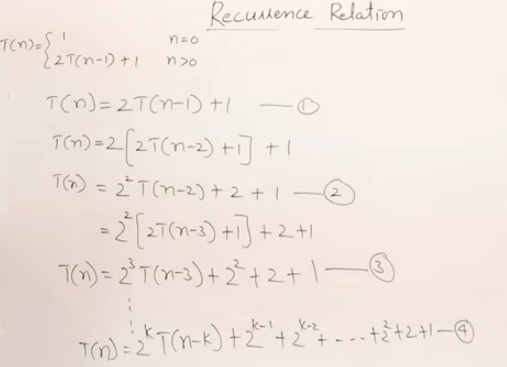 Recurrence Relation
T(n)={ 1 n=0
2T(n-1)+1 n>0
T(n)=2T(n-1)+1 —①
T(n)=2[2T(n-2)+1]+1
T(n)=2²T(n-2)+2+1 —②
=2²[2T(n-3)+1]+2+1
T(n)=2³T(n-3)+2²+2+1 —③
⋮
T(n)=2ᵏT(n-k)+2ᵏ⁻¹+2ᵏ⁻²+----+2²+2+1 —④